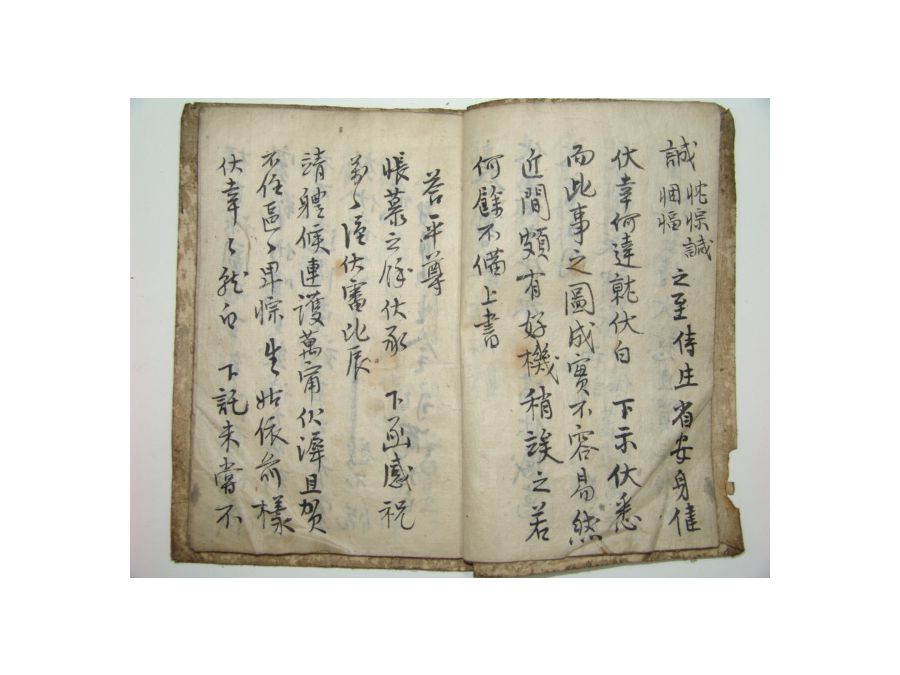 誠 忱悰諴 悃愊 之至侍生省安身隹
伏幸何達就伏白 下示伏悉
而此事之圖成實不容易然
近間頗有好機稍誒之若
何餘不備上書
答平尊
悵慕之餘伏承 下函感祝
萬〻謹伏審比辰
靖體候連護萬甯伏溸且賀
不任區〻卑悰生姑依前樣
伏幸〻就白 下託未嘗不